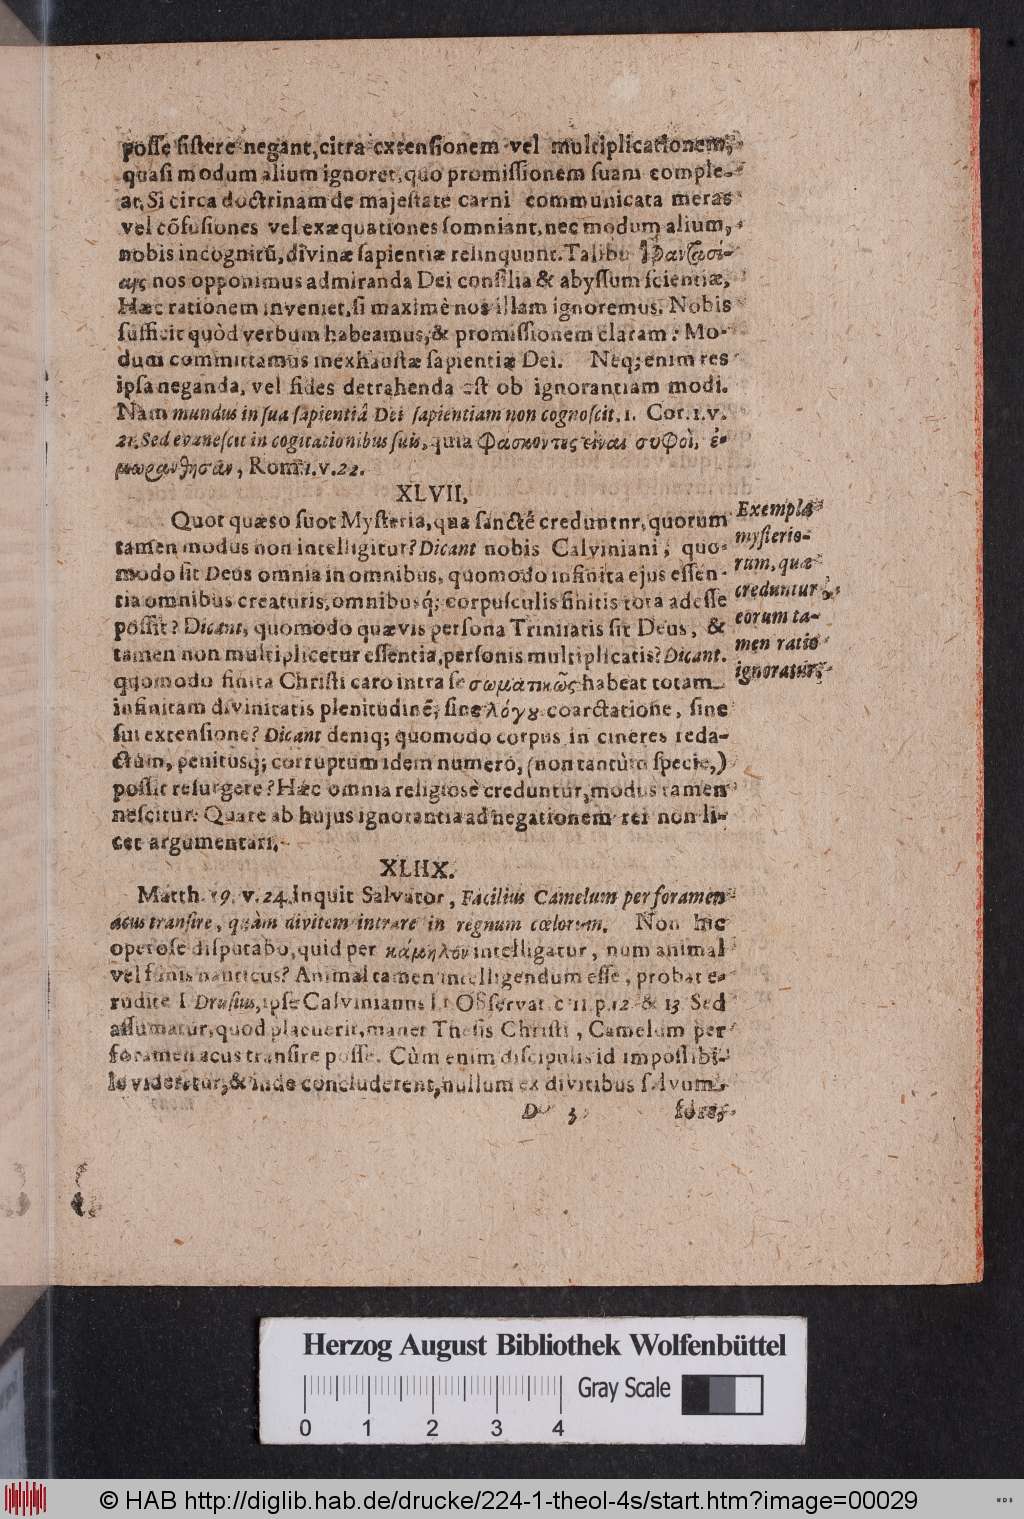 posse sistere negant, citra extensionem vel multiplicationem,
quasi modum alium ignoret, quo promissionem suam comple-
at. Si circa doctrinam de majestate carni communicata meras
vel cõfusiones vel exæquationes somniant, nec modum alium,
nobis incognitũ, divinæ sapientiæ relinquunt. Talibus φαντασί-
αις nos opponimus admiranda Dei consilia & abyssum scientiæ,
Hæc rationem inveniet, si maximè nos illam ignoremus. Nobis
sufficit quòd verbum habeamus, & promissionem claram: Mo-
dum committamus inexhaustæ sapientiæ Dei. Neq; enim res
ipsa neganda, vel fides detrahenda est ob ignorantiam modi.
Nam mundus in sua sapientiâ Dei sapientiam non cognoscit, 1. Cor. 1. v.
21. Sed evanescit in cogitationibus suis, quia φάσκοντες εἶναι σοφοὶ, ἐ-
μωράνθησαν, Rom. 1. v. 22.
XLVII,
Quot quæso suot Mysteria, quæ sanctè creduntnr, quorum
tamen modus non intelligitur? Dicant nobis Calviniani, quo-
modo sit Deus omnia in omnibus, quomodo infinita ejus essen-
tia omnibus creaturis, omnibusq́; corpusculis finitis tota adesse
possit? Dicant, quomodo quævis persona Trinitatis sit Deus, &
tamen non multiplicetur essentia, personis multiplicatis? Dicant.
quomodo finita Christi caro intra se σωματικῶς habeat totam
infinitam divinitatis plenitudinẽ, sine λόγου coarctatione, sine
sui extensione? Dicant deniq; quomodo corpus in cineres reda-
ctum, penitusq; corruptum idem numero, (non tantùm specie,)
possit resurgere? Hæc omnia religiosè creduntur, modus tamen
nescitur. Quare ab hujus ignorantia ad negationem rei non li-
cet argumentari.
Exempla
mysterio-
rum, quæ
creduntur,
eorum ta-
men ratio
ignoratur.
XLIIX.
Matth. 19. v. 24. inquit Salvator, Facilius Camelum per foramen
acus transire, quàm divitem intrare in regnum cœlorum. Non hic
operose disputabo, quid per κάμηλον intelligatur, num animal
vel funis nauticus? Animal tamen intelligendum esse, probat e-
rudite I Drusius, ipse Calvinianus Observat. c. 11. p. 12. & 13. Sed
assumatur, quod placuerit, manet Thesis Christi, Camelum per
foramen acus transire posse. Cùm enim discipulis id impossibi-
le videretur, & inde concluderent, nullum ex divitibus salvum
D 3 fore,
Herzog August Bibliothek Wolfenbüttel
Gray Scale
0 1 2 3 4
© HAB http://diglib.hab.de/drucke/224-1-theol-4s/start.htm?image=00029